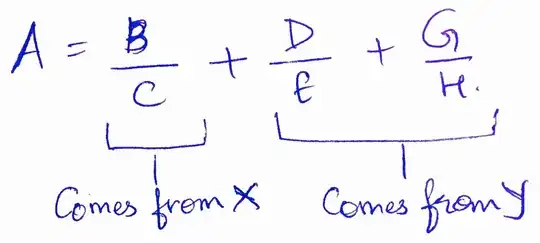 A = B/C + D/E + G/H.
Comes from X Comes from Y